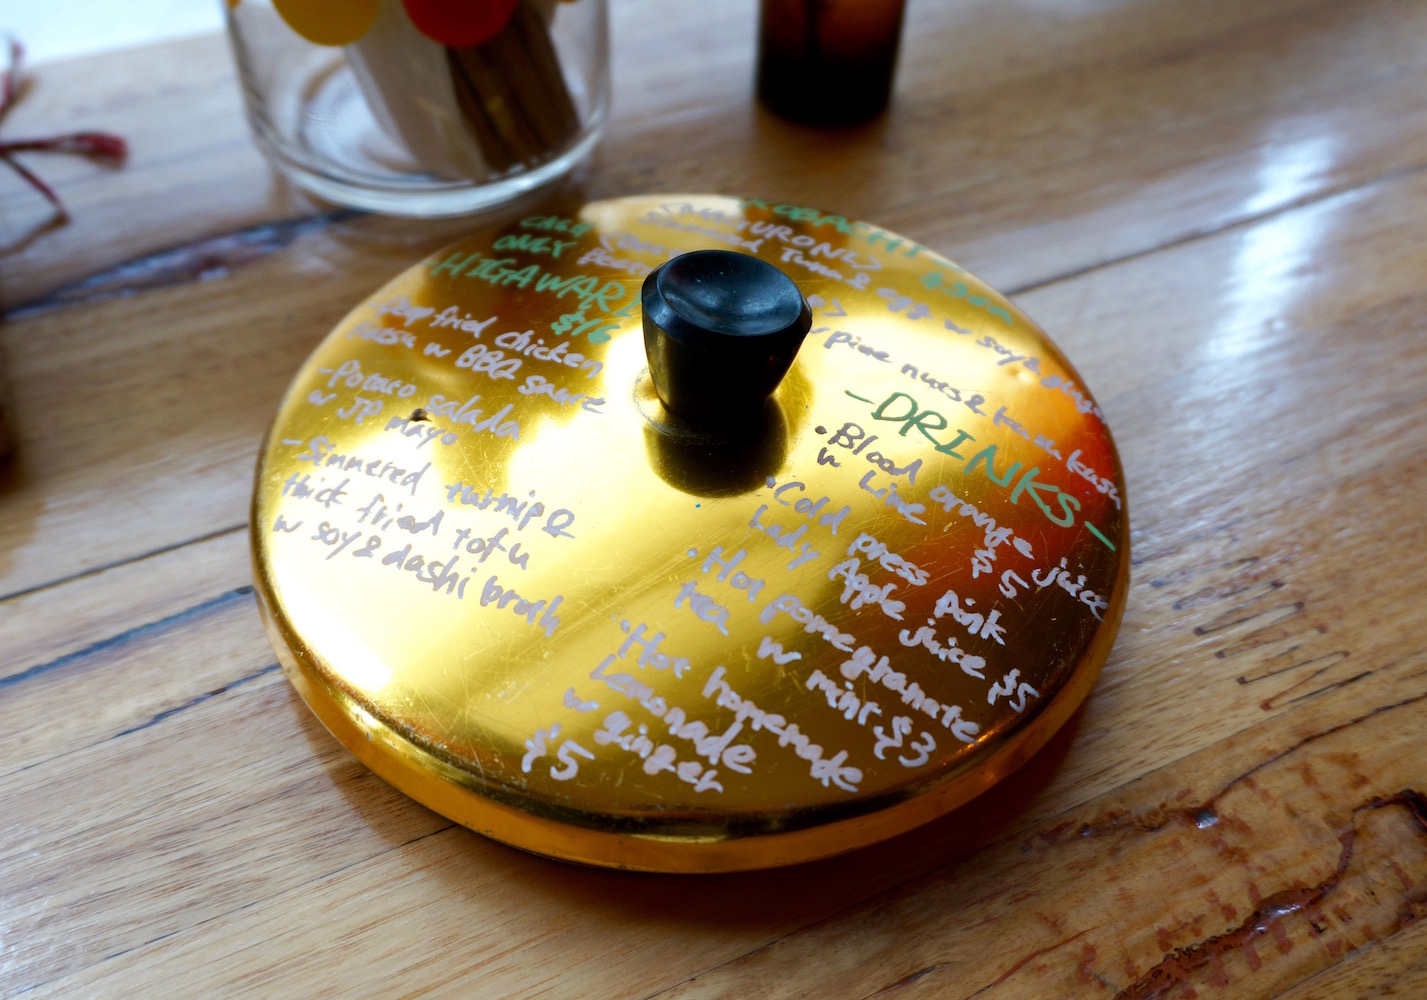 CASH
ONLY
HIGAWARI
$16
fried chicken
w BBQ sauce
-Potato salada
w JP mayo
-Simmered turnip &
thick fried tofu
w soy & dashi broth
KOBACHI
egg w soy &
w pine nuts &
-DRINKS-
•Blood orange juice
w Lime $5
•Cold press Pink
Lady Apple juice $5
•Hot pomegranate
tea w mint $3
•Hot homemade
Lemonade
w ginger
$5